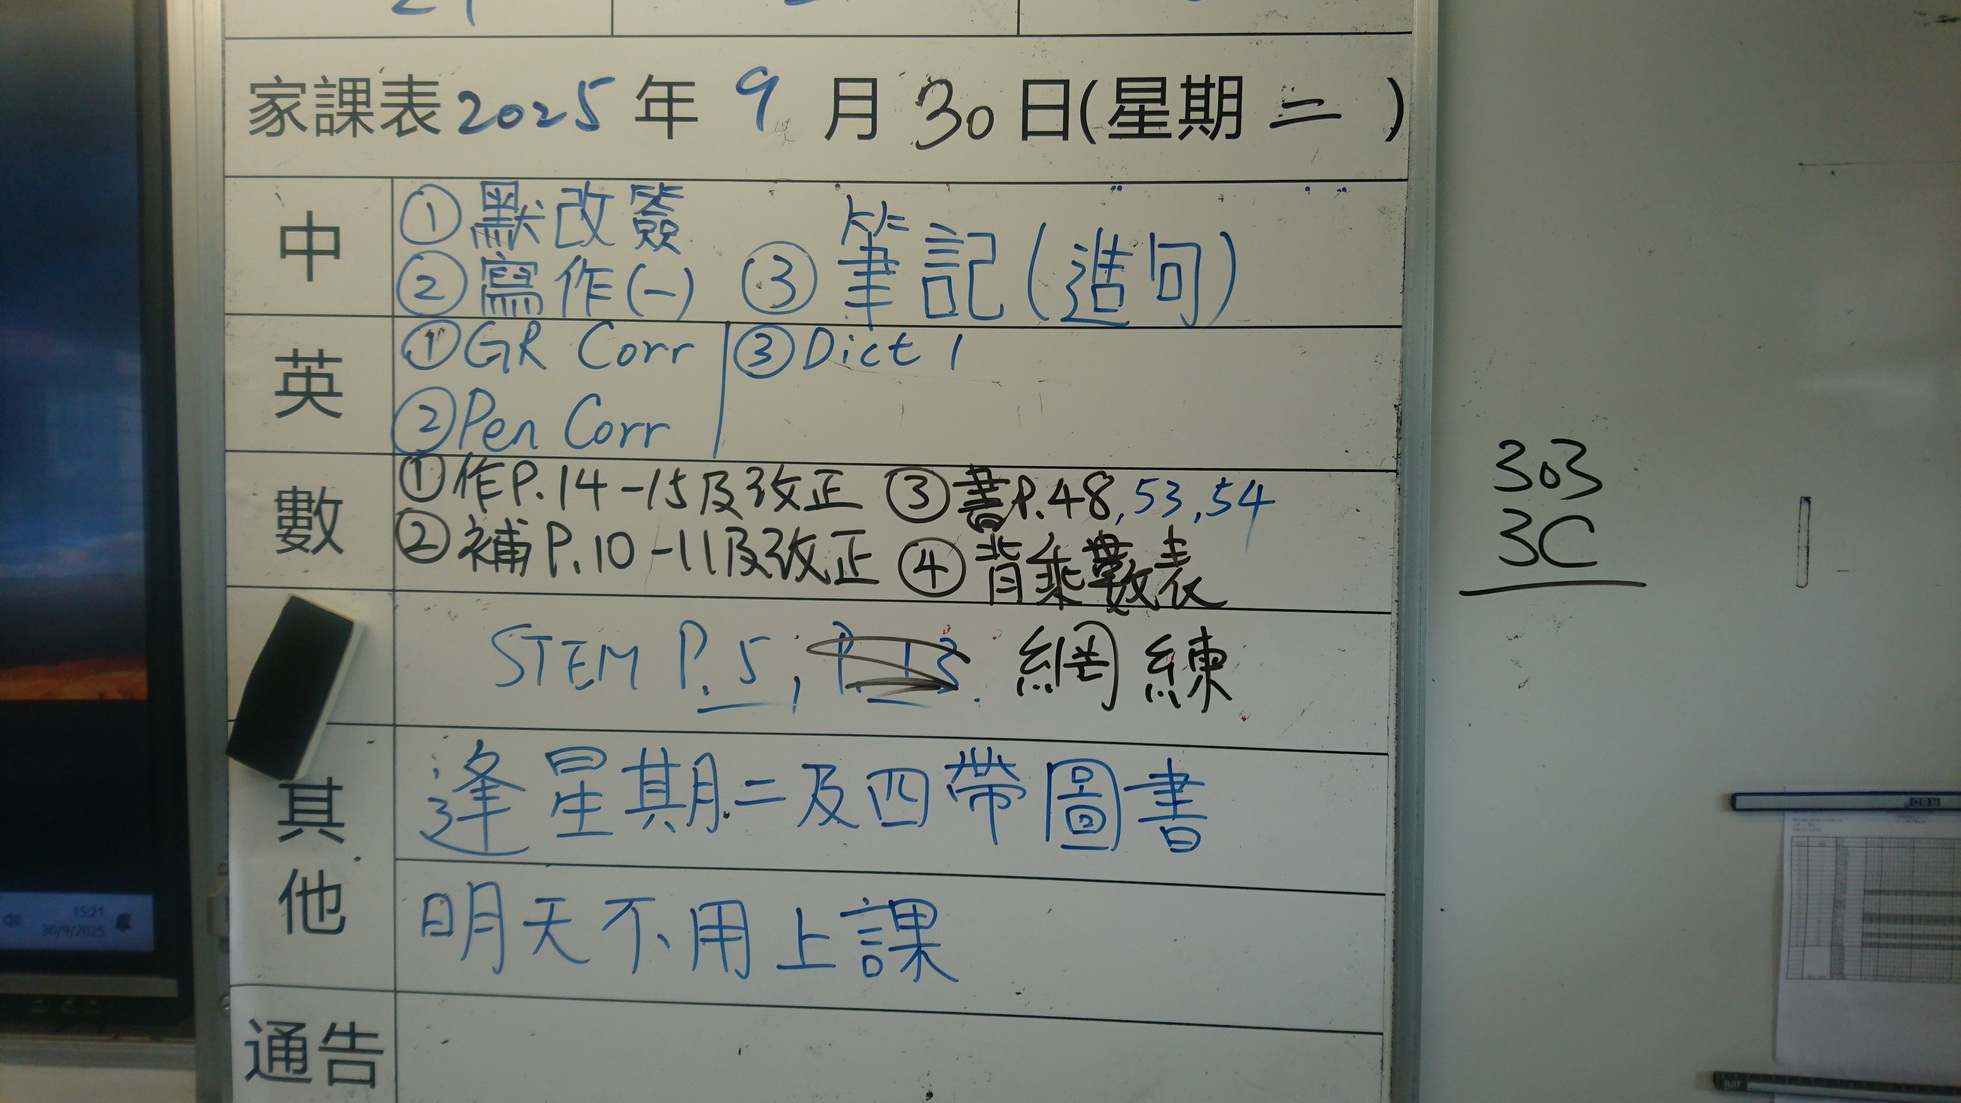 家課表 2025 年 9 月 30 日(星期 二 )
中
① 默改簽
② 寫作(一) ③ 筆記(造句)
英
① GR Corr ③ Dict 1
② Pen Corr
數
① 作P.14-15及改正 ③ 書P.48,53,54
② 補P.10-11及改正 ④ 背乘數表
STEM P.5, 網練
其他
逢星期二及四帶圖書
明天不用上課
通告
303
3C
15:21
30/9/2025